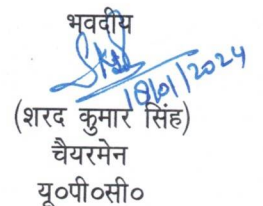 भवदीय
18/01/2024
(शरद कुमार सिंह)
चैयरमेन
यू०पी०सी०